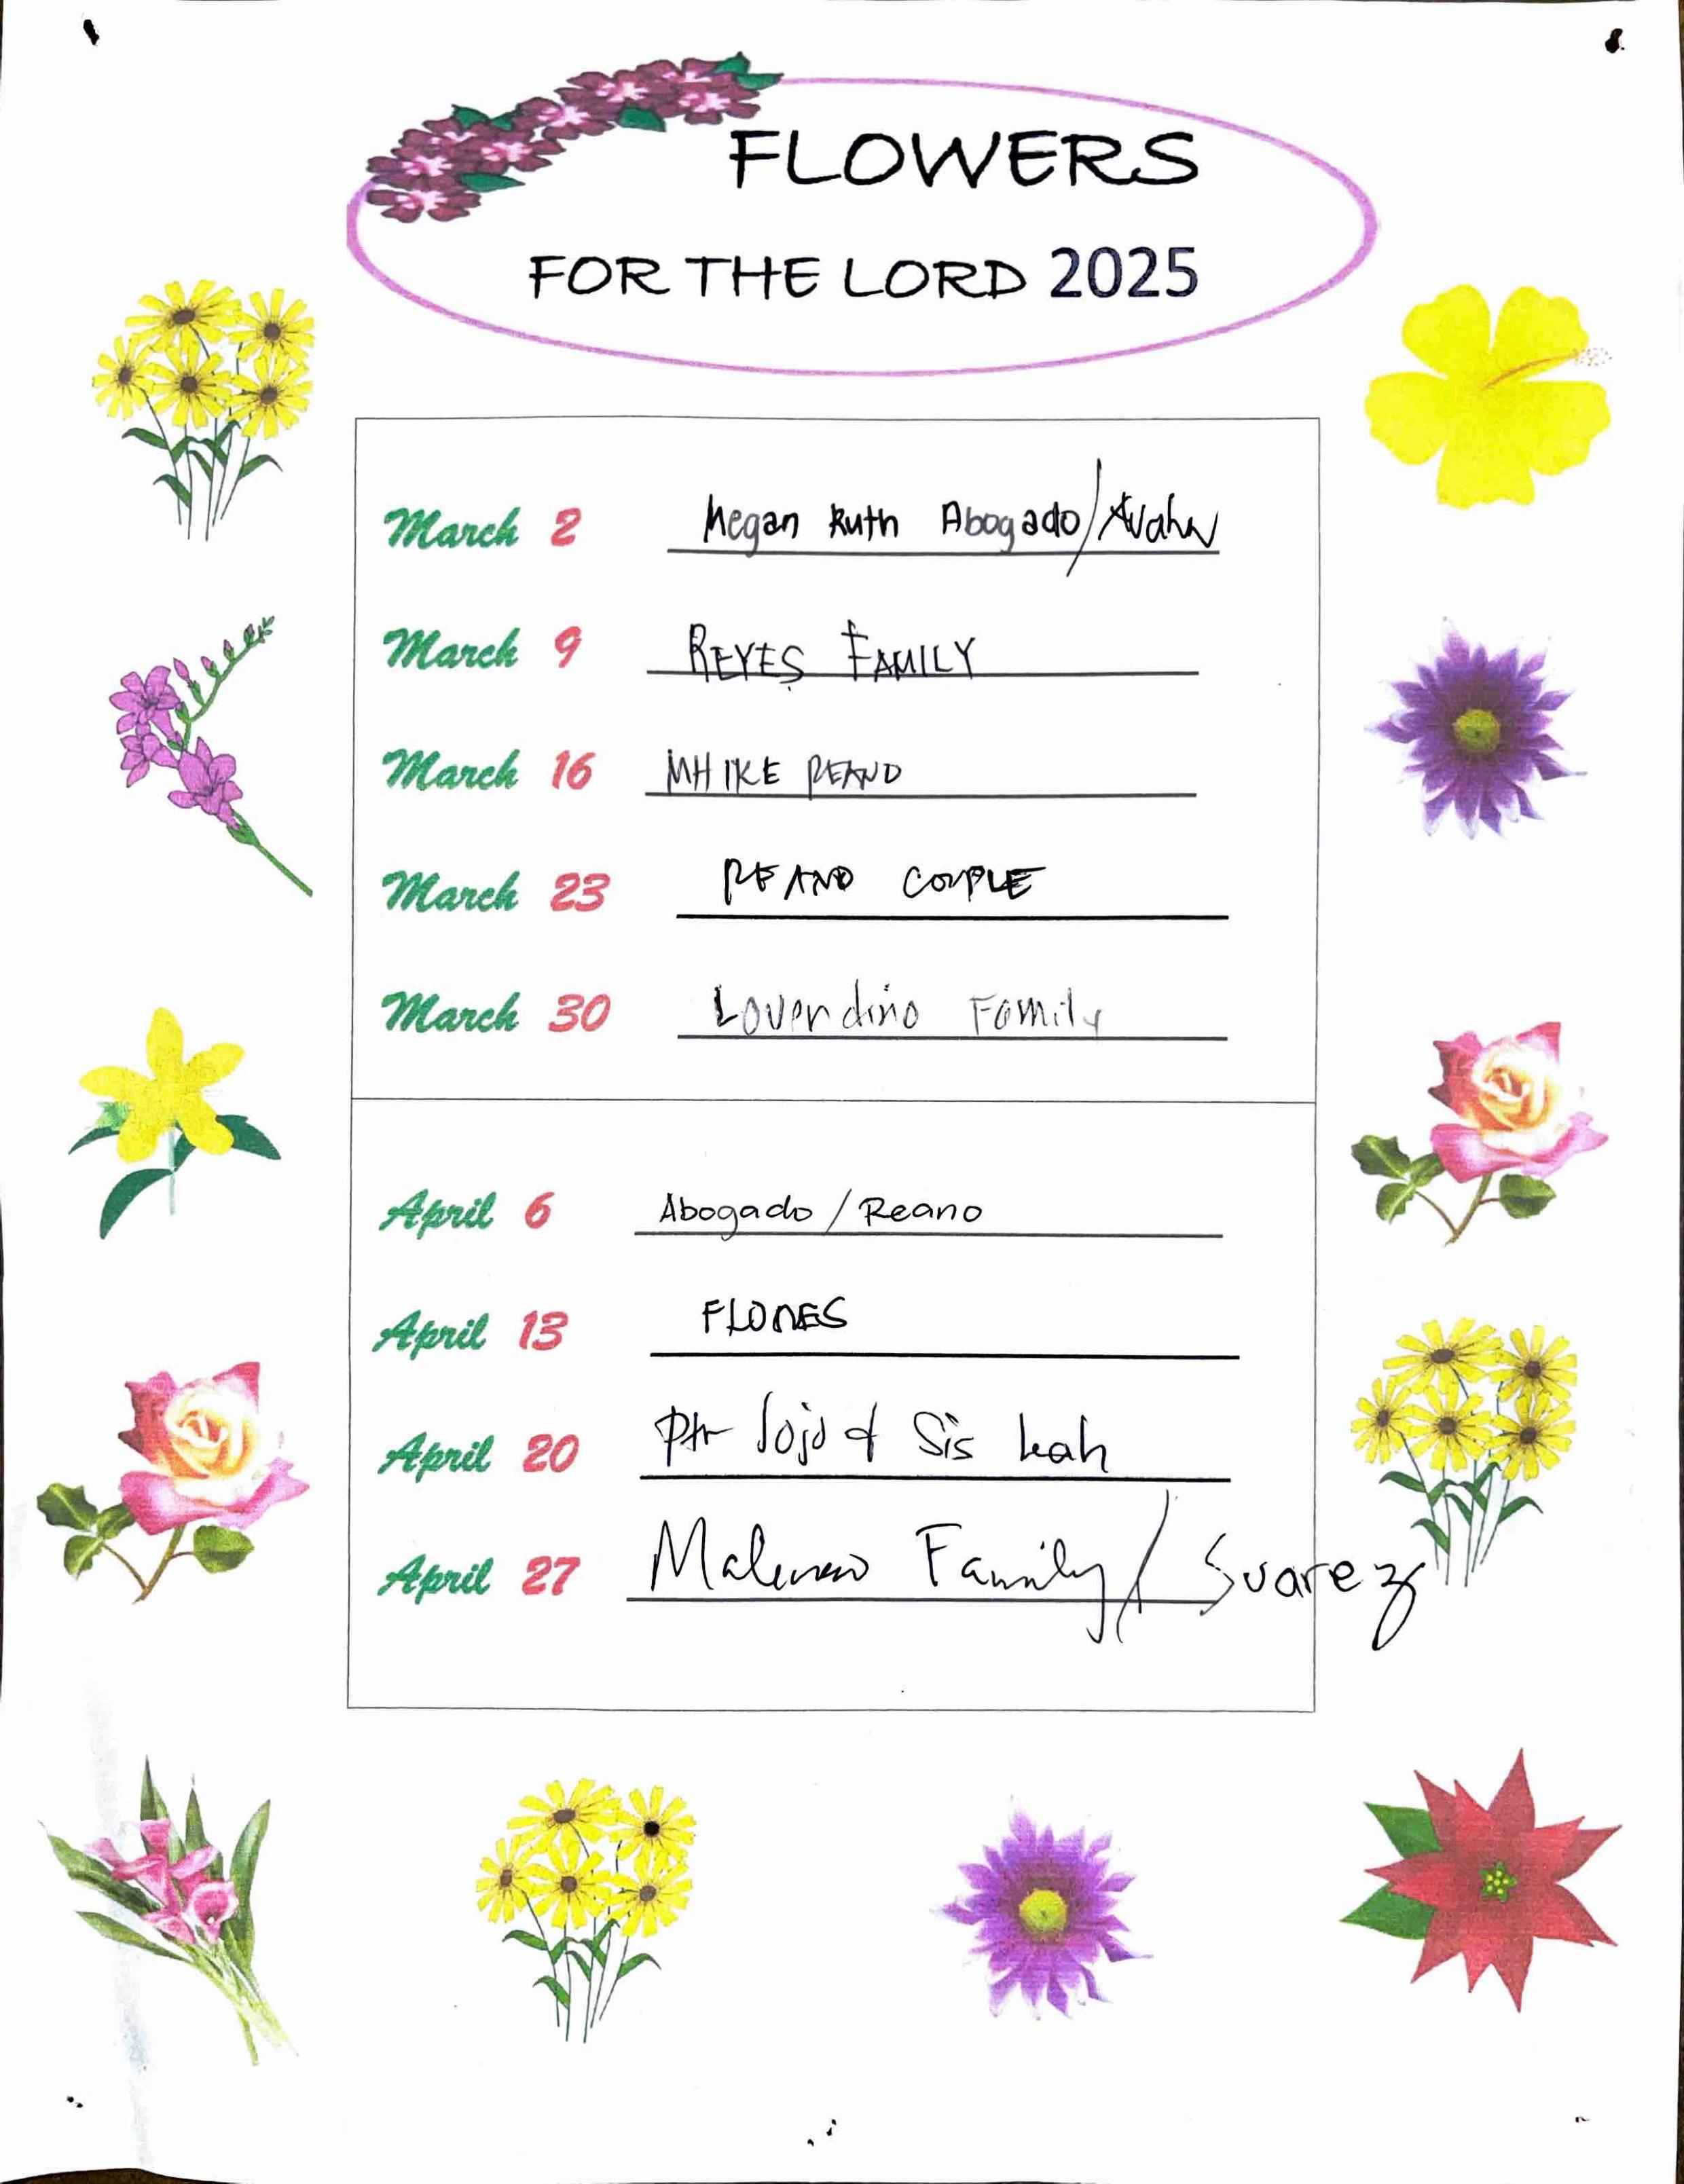 FLOWERS
FOR THE LORD 2025
March 2 Megan Ruth Abogado/
March 9 REYES FAMILY
March 16 MHIKE REANO
March 23 REANO COUPLE
March 30 Lovendino Family
April 6 Abogado / Reano
April 13 FLORES
April 20 Ptr Jojo & Sis Leah
April 27 Family / Suarez